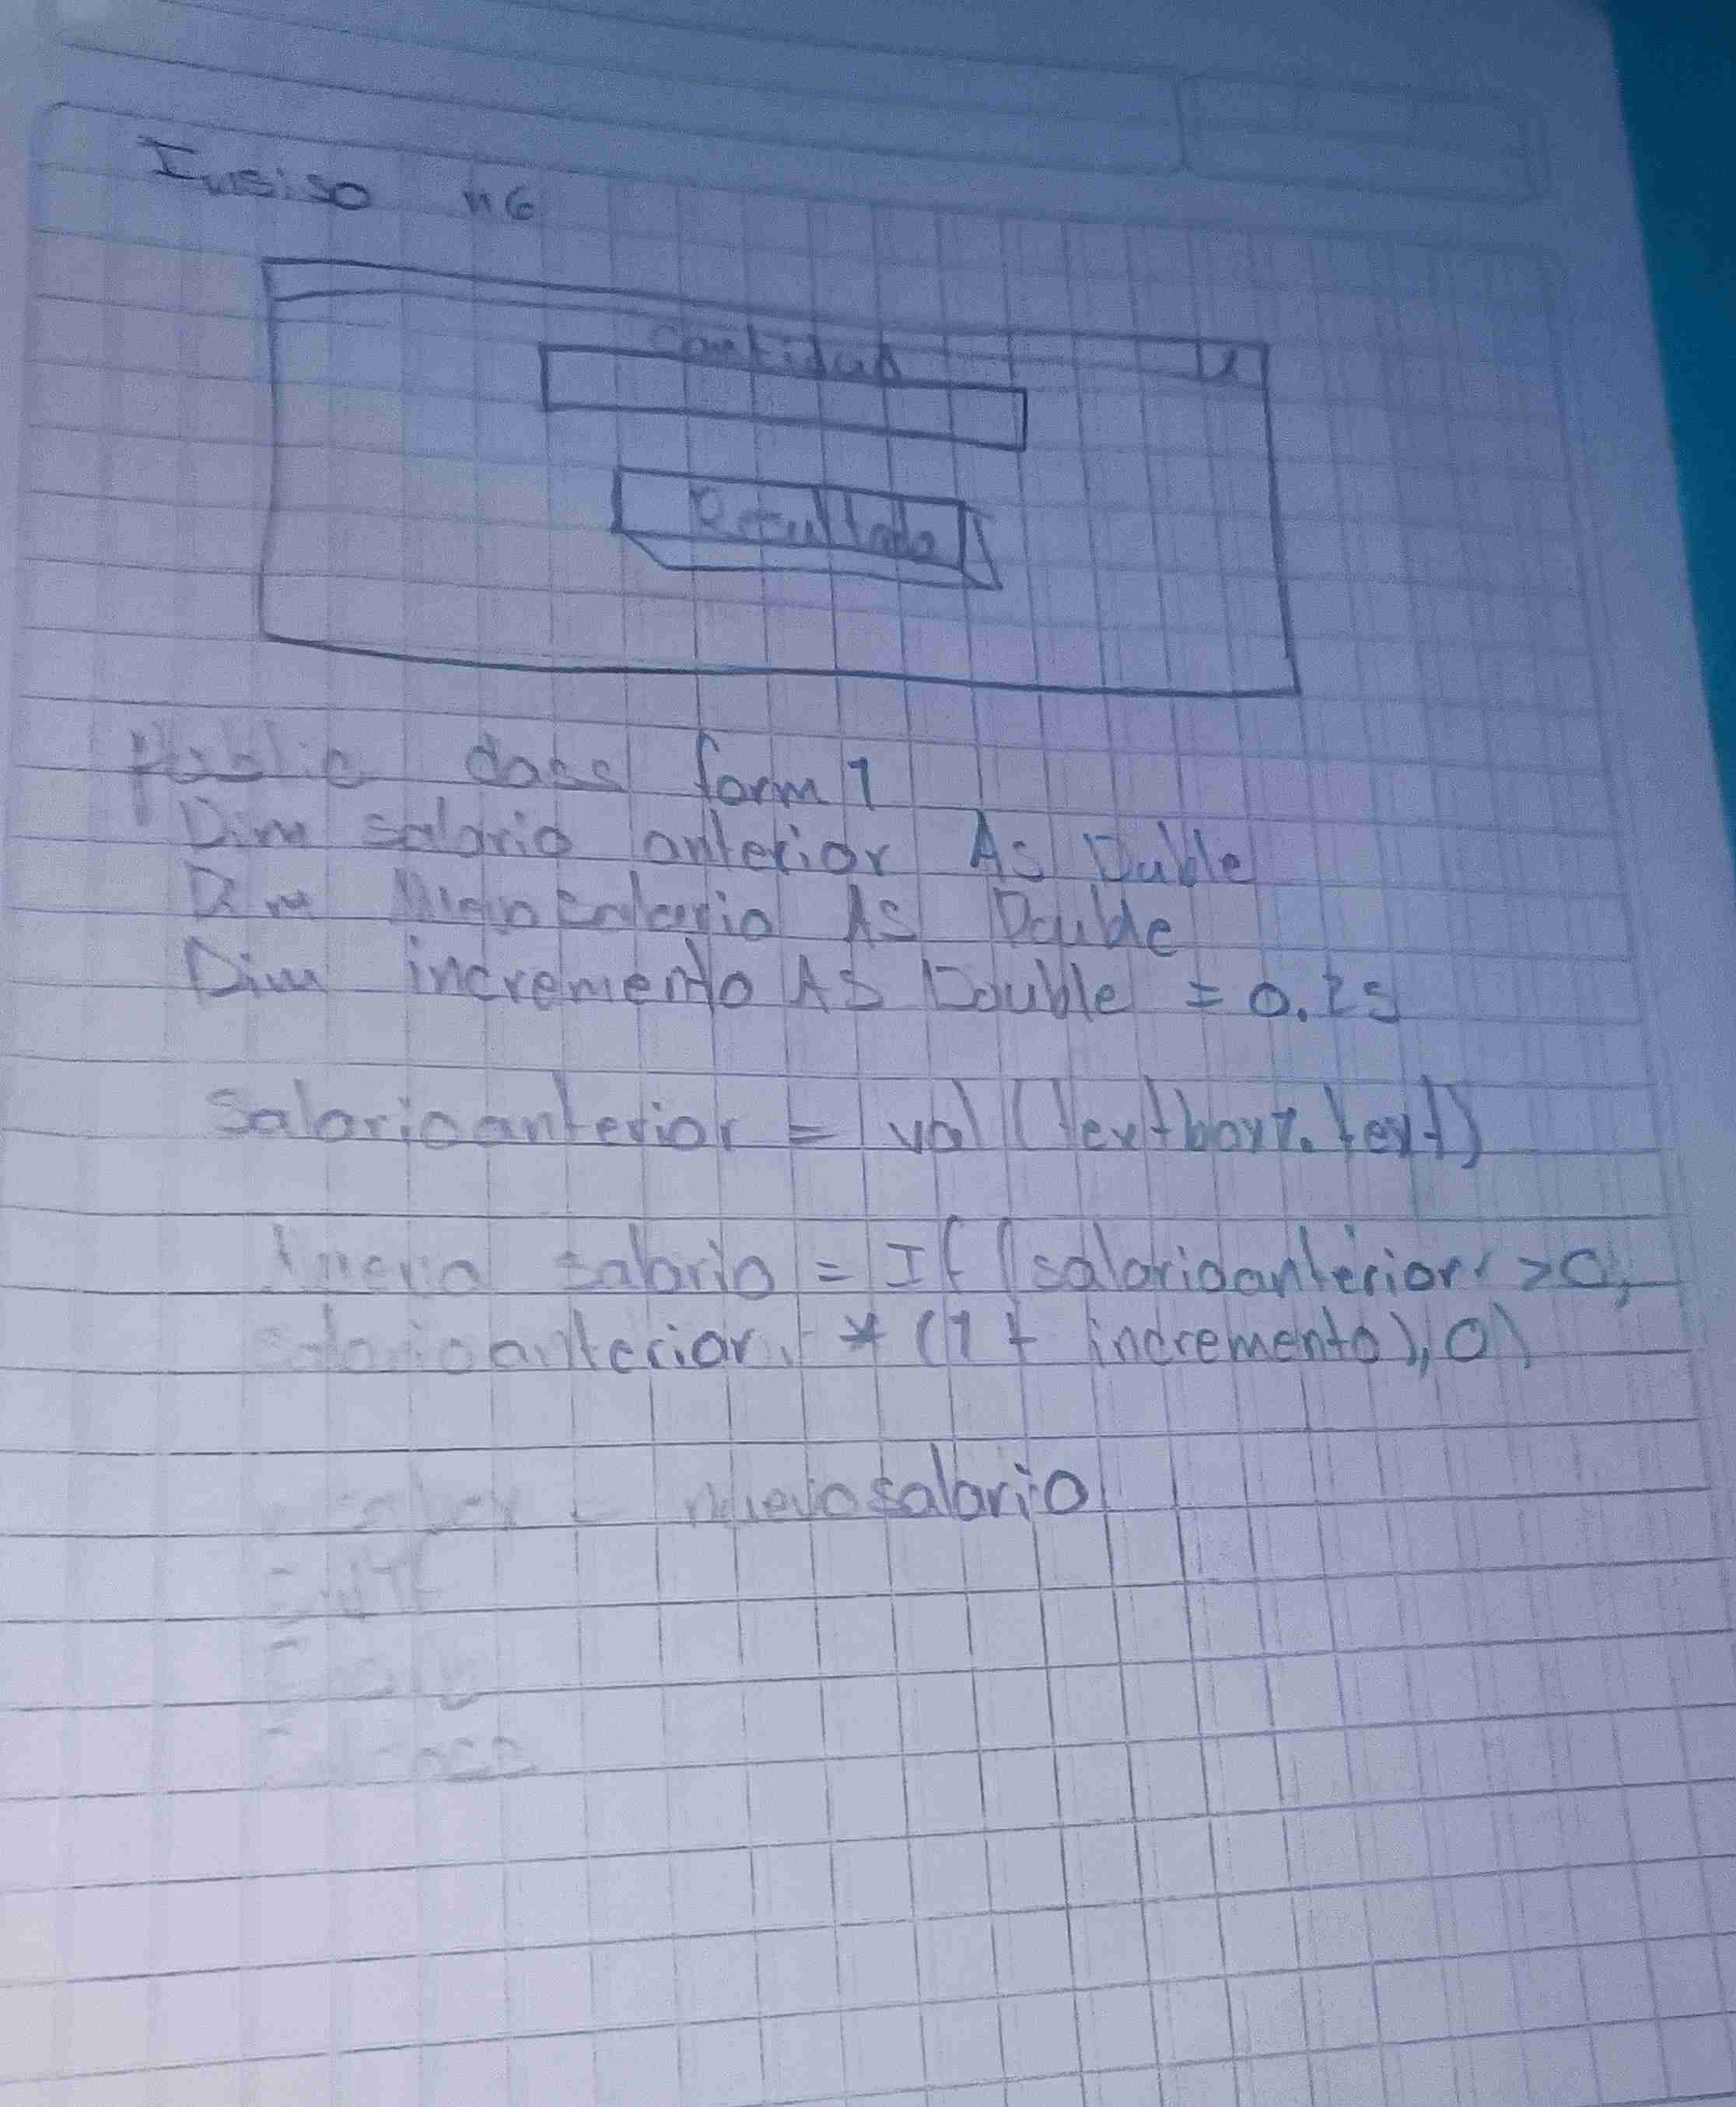 Insiso n6
Cantidad
x
Resultado
Public class form 1
Dim salario anterior As Duble
Dim Nuevosalario As Double
Dim incremento As Double = 0.25
Salarioanterior = val (textbox1.text)
salario = If (salarioanterior >0,
salarioanterior * (1 + incremento),0)
= nuevosalario